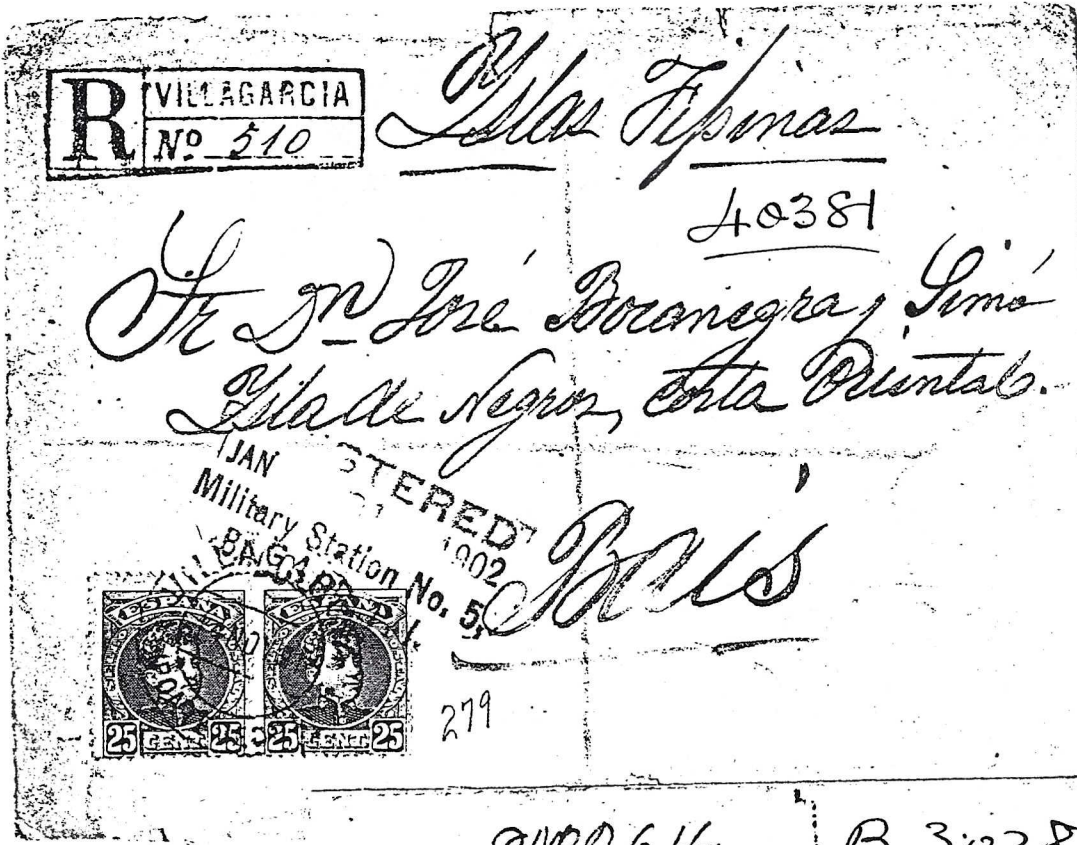 R VILLAGARCIA
Nº 510
Yslas Fipinas
40381
Sr Dn José Bocanegra y Simó
Ysla de Negros, costa Oriental.
Bais
STERED
JAN 1902
Military Station No. 5,
ESPAÑA ESPAÑA
25 CENT 25 25 CENT 25
279